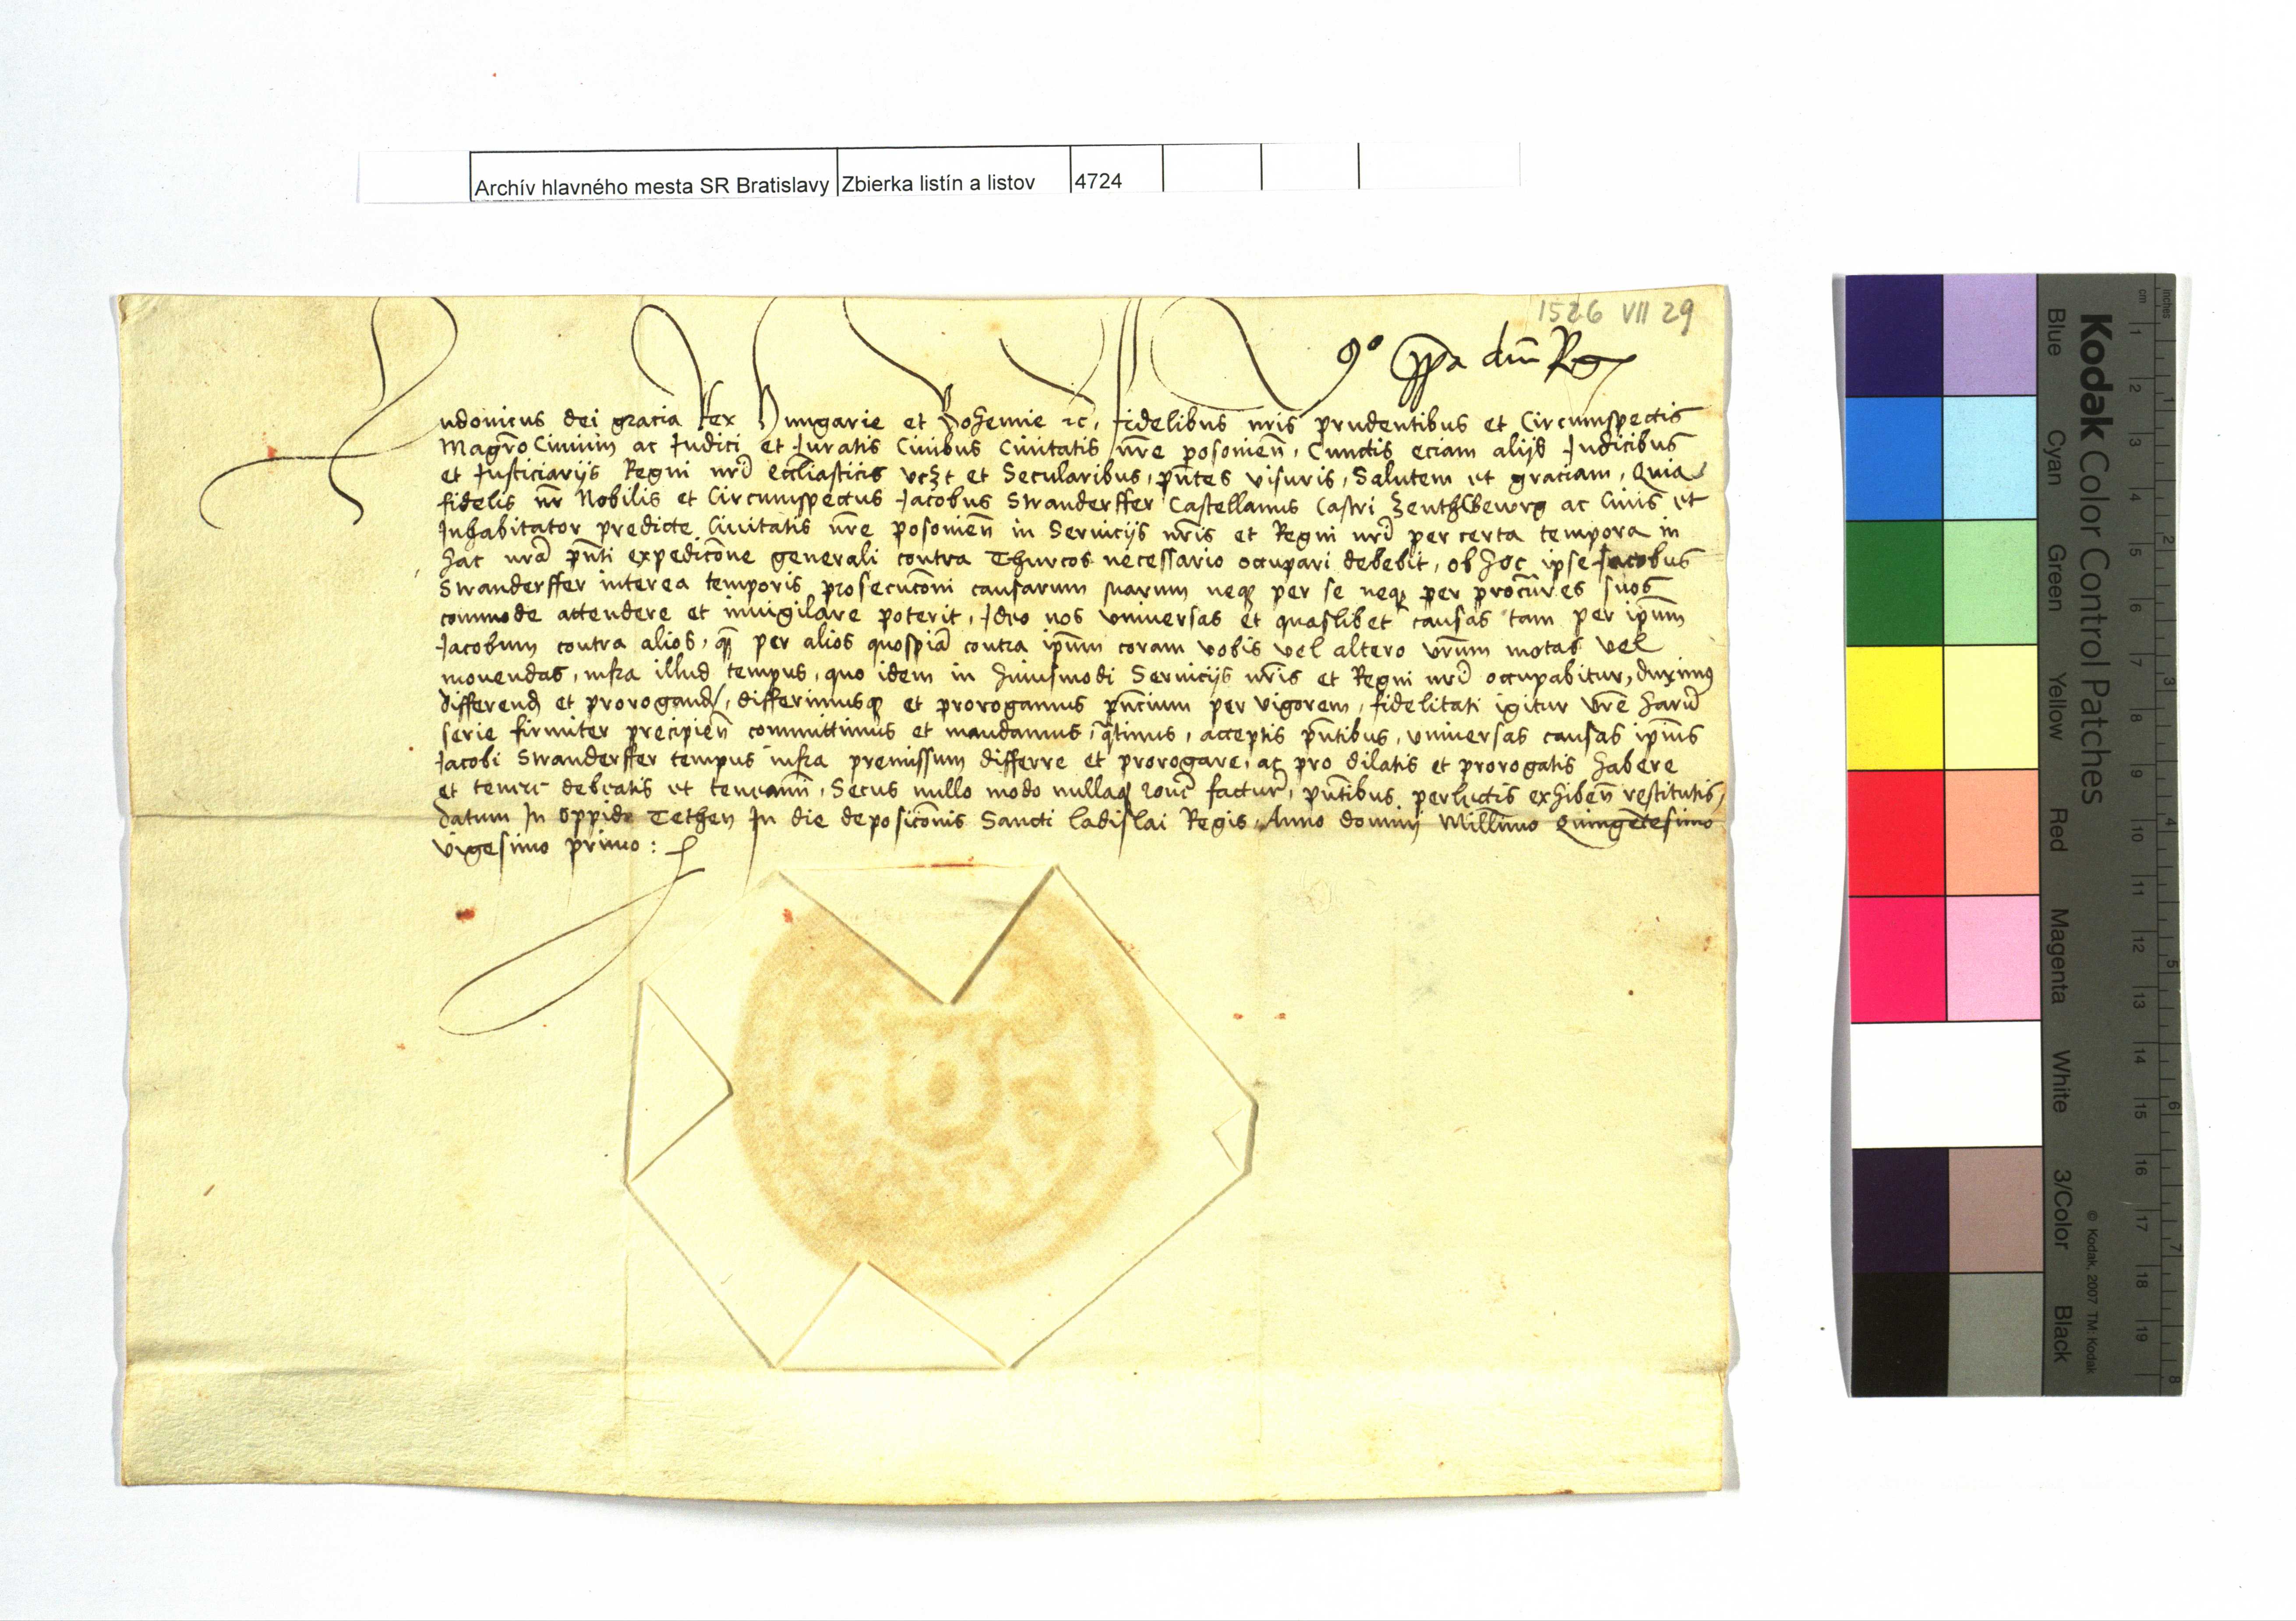 Archív hlavného mesta SR Bratislavy Zbierka listín a listov 4724
1526 VII 29
udouicus dei gracia Rex Hungarie et Bohemie ⁊c, fidelibus nr̄is prudentibus et Circumspectis
Magr̄o Ciuium ac Judici et Juratis Ciuibus Ciuitatis nr̄e posonien̄, Cunctis eciam alijs Judicibus
et Justiciarijs Regni nrī eccl̄iasticis vcȝt et Secularibus, pn̄tes visuris, Salutem et graciam, Quia
fidelis nr̄ Nobilis et Circumspectus Jacobus Stranderffer Castellanus Castri ac Ciuis et
Inhabitator predicte Ciuitatis nr̄e posonien̄ in Seruicijs nr̄is et Regni nrī per certa tempora in
hac nrā pn̄ti expedicōne generali contra Thurcos necessario occupari debebit, ob hoc ipse Jacobus
Stranderffer interea temporis prosecucōni causarum suarum neqꝫ per se neqꝫ per procūres suos
commode attendere et inuigilare poterit, Ideo nos vniuersas et quaslibet causas tam per ip̄um
Jacobum contra alios, qꝫ̄ per alios quospiā contra ip̄um coram vobis vel altero vr̄um motas vel
mouendas, infra illud tempus, quo idem in huiusmodi Seruicijs nr̄is et Regni nrī occupabitur, duximꝰ
differend et prorogand, differimusqꝫ et prorogamus pn̄cium per vigorem, fidelitati igitur vr̄e harū
serie firmiter precipien̄ committimus et mandamus, q̄tinus, acceptis pn̄tibus, vniuersas causas ip̄ius
Jacobi Stranderffer tempus infra premissum differre et prorogare, ac pro dilatis et prorogatis habere
et teneri debeatis et teneamn̄, Secus nullo modo nullaqꝫ factur̄, pn̄tibus perlectis exhiben̄ restitutis,
Datum In oppido Tethen In die deposicōnis Sancti ladislai Regis, Anno domini Millīmo Quingētesimo
vigesimo primo:
Kodak Color Control Patches
Blue Cyan Green Yellow Red Magenta White 3/Color Black
© Kodak, 2007 TM: Kodak
cm 1 2 3 4 5 6 7 8 9 10 11 12 13 14 15 16 17 18 19
inches 1 2 3 4 5 6 7 8